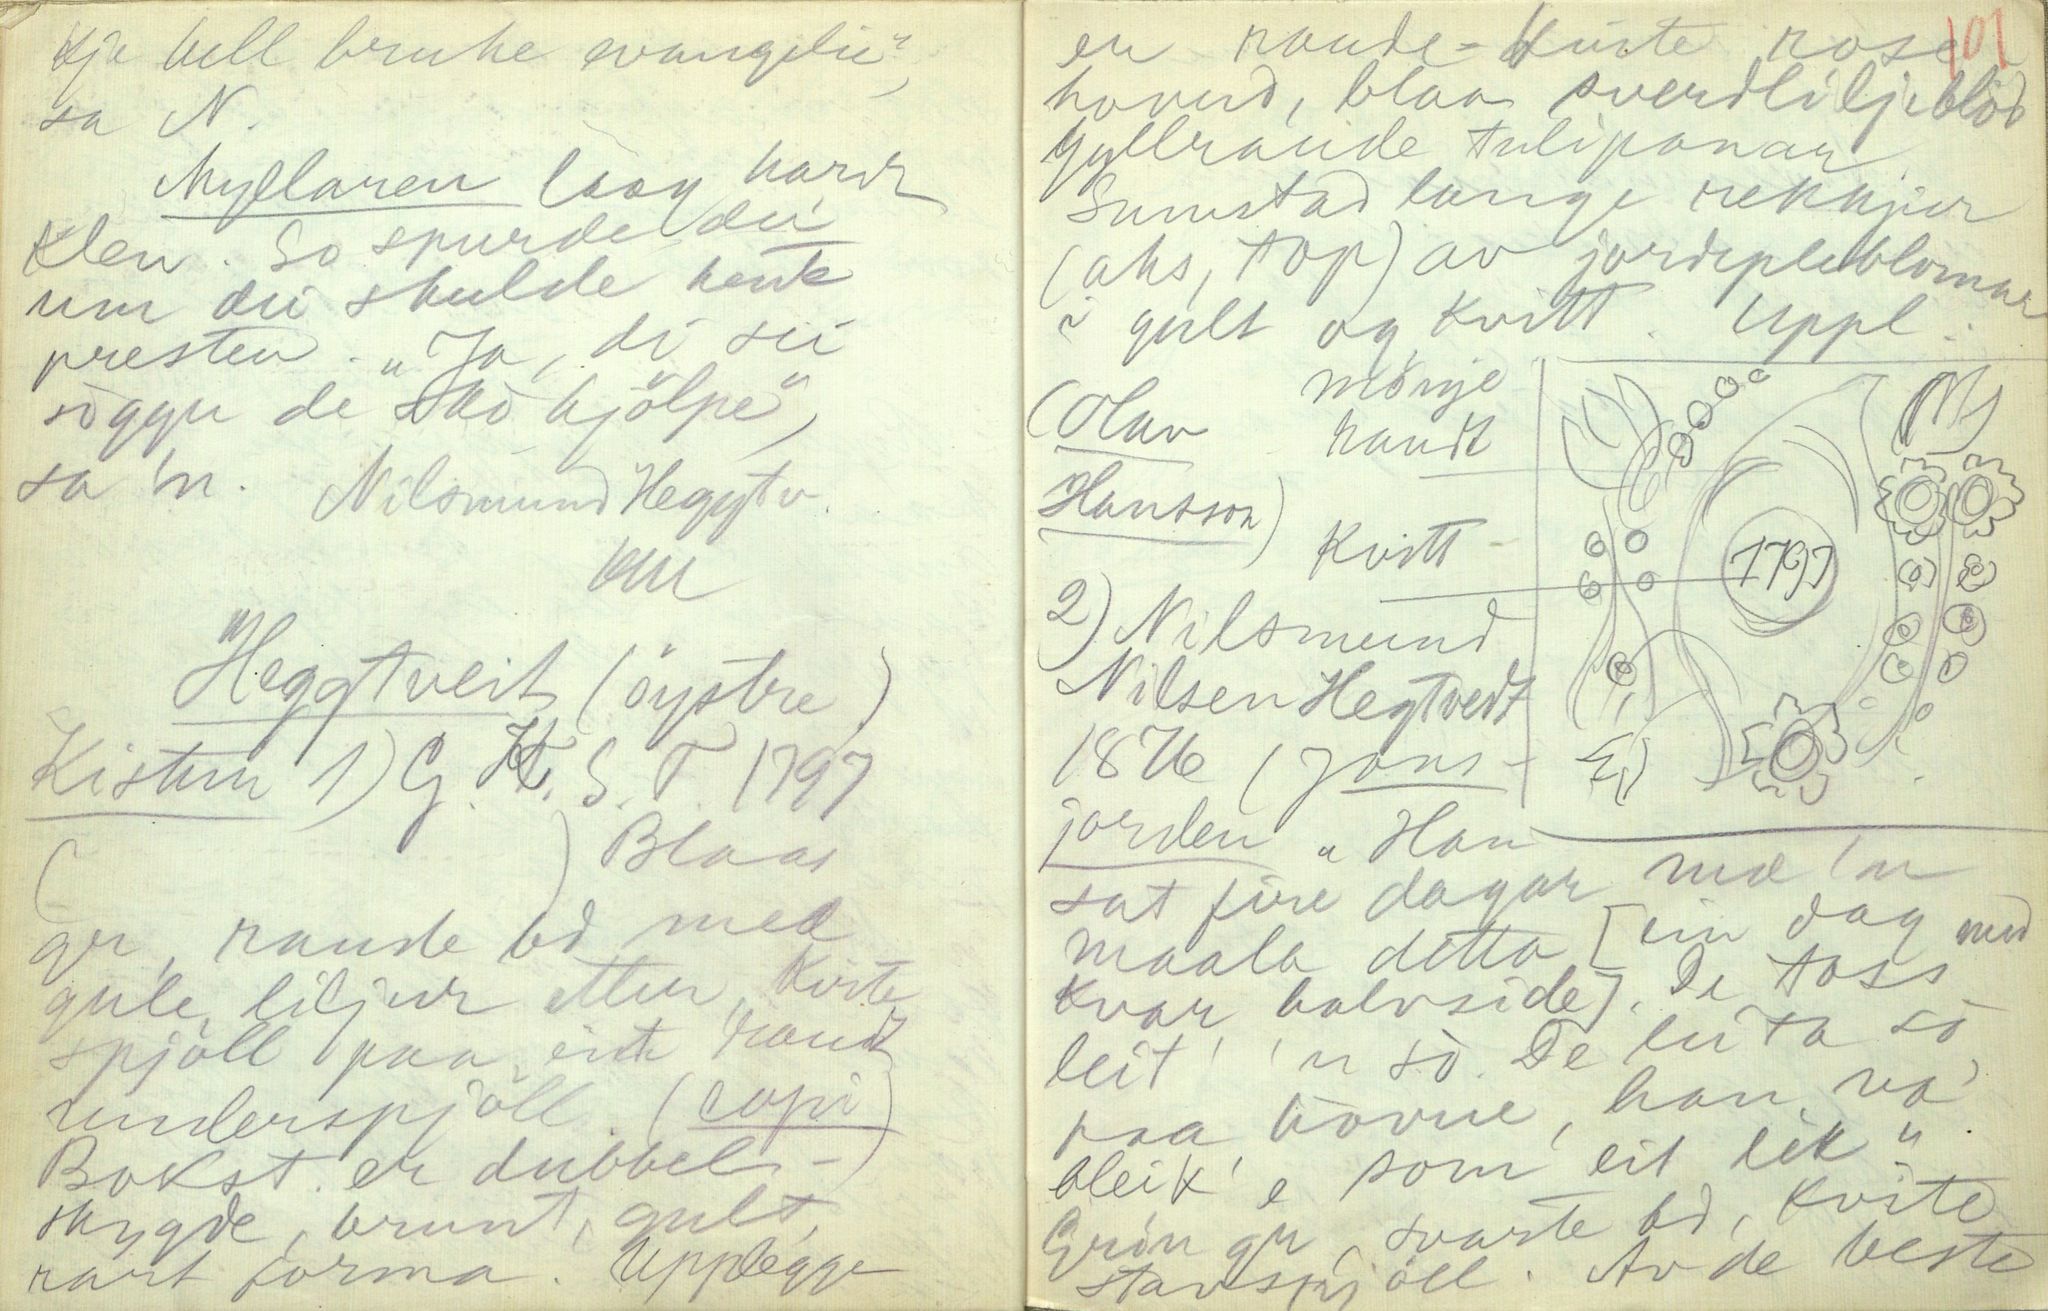 kje vell bruke evangelie",
sa N.
Myllaren laag hardt
klen. So spurde dei
um dei skulde hente
presten. "Ja, di sei
söggu de skö hjölpe",
sa 'n. Nilsmund Heggtv.
Heggtveit (öystre)
Kistur 1) G. K. S. T. 1797
( ) Blaar
gr, raude bd med
gule liljur etter, kvite
spjöll paa eit raudt
underspjöll. (copi)
Bokst. er dubbel-
skygde, brunt, gult,
rart forma. Upplegge
er raude-kvite rose 101
hovud, blaa sverdliljeblöd
gyllraude tulipanar
Sumstad lange rekkjur
(aks, top) av jordepleblomar
i gult og kvitt. Uppl.
(Olav
Hansson)
mönje
raudt
kvitt
1797
2) Nilsmund
Nilsen Hegtvedt
1876 (Jons-
jorden "Han
sat fire dagar med 'n
maala detta [ein dag med
kvar halvside]. De tass
leit' 'n sö. De leita sö
paa hovue, han va'
bleik' e som eit lik"
Grön gr, svarte bd, kvite
stavspjöll. Av de beste